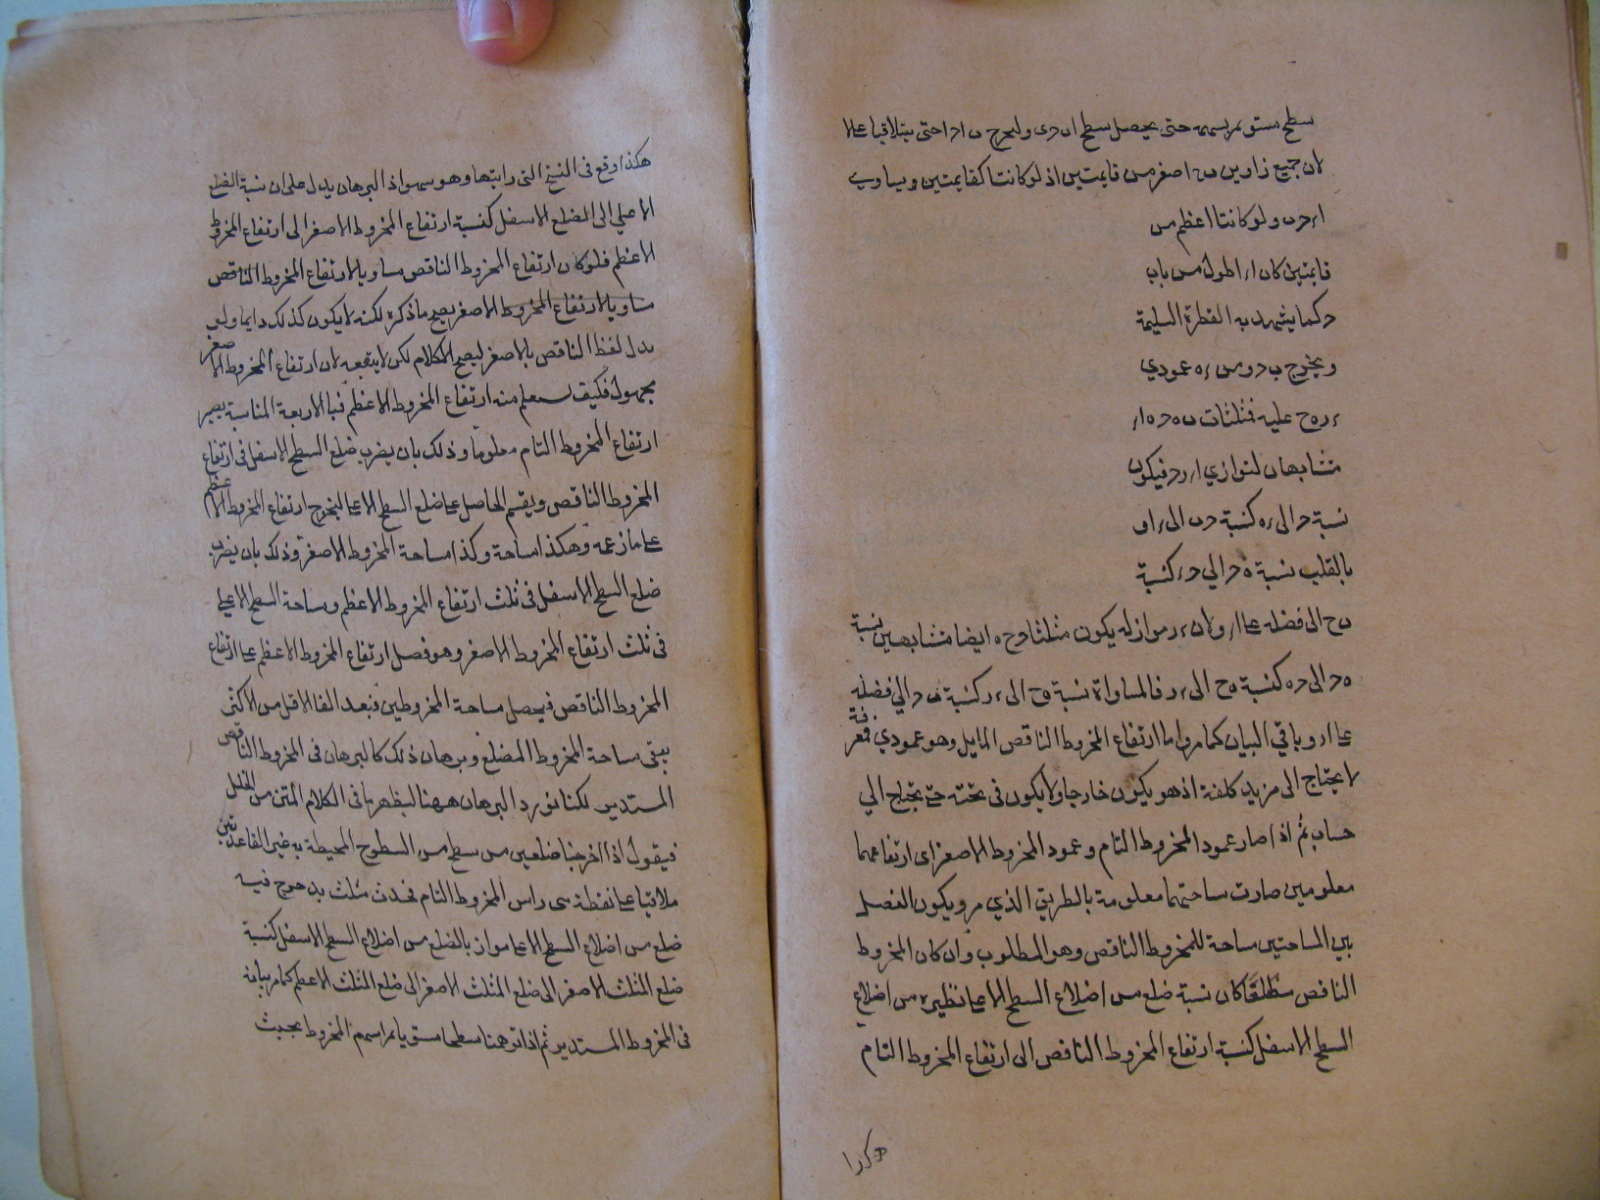 سطح مستو يمر بسهمه حتى يحصل سطح ا ب ح د وليخرج ب ا د ا حتى يتلاقيا على ا
لان جميع زاويتى ب ح اصغر من قايمتين اذ لو كانتا كقايمتين ويساوى
ا ر ح ب ولو كانتا اعظم من
قايمتين كان ا ر اطول من باب
ح كما يشهد به الفطرة السليمة
ويخرج ب ح ومن ر ه عمودي
ر ه ح عليه فمثلثات ب ه ح ه ا ر
متشابهان لتوازي ا ر د ح فيكون
نسبة ح الى ر ه كنسبة ح ب الى ر ا و
بالقلب نسبة ه ح الي ح ر كنسبة
ب ح الى فضله على ا ر ولان ر د مواز له يكون مثلثا و ح ه ايضا متشابهين نسبة
ه ح الى ح ه كنسبة ه ح الى ر د فالمساواة نسبة ه ح الى ر د كنسبة ب ح الي فضله
على ا ر وباقي البيان كما مر واما ارتفاع المخروط الناقص المايل وهو عمودي فمعرفة
لا يحتاج الى مزيد كلفة اذ هو يكون خارجا ولا يكون في تحته حتى يحتاج الي
حساب ثم اذا صار عمود المخروط التام وعمود المخروط الاصغر اى ارتفاعهما
معلومين صارت ساحتهما معلومة بالطريق الذي مر ويكون الفضل
بين المساحتين مساحة للمخروط الناقص وهو المطلوب وان كان المخروط
الناقص مطلقا كان نسبة ضلع من اضلاع السطح الاعلى نظيره من اضلاع
السطح الاسفل كنسبة ارتفاع المخروط الناقص الى ارتفاع المخروط التام
هكذا
هكذا وقع فى النسخ التى رايتها وهو سهو اذ البرهان يدل على ان نسبة الضلع
الاعلي الى الضلع الاسفل كنسبة ارتفاع المخروط الاصغر الى ارتفاع المخروط
الاعظم فلو كان ارتفاع المخروط الناقص مساويا لارتفاع المخروط الناقص
مساويا لارتفاع المخروط الاصغر يصح ما ذكره لكنه لا يكون كذلك دايما ولو
بدل لفظ الناقص بالاصغر ليصح الكلام لكن لا ينفعه لان ارتفاع المخروط الاصغر
مجهول فكيف يعلم منه ارتفاع المخروط الاعظم فبالاربعة المناسبة يصير
ارتفاع المخروط التام معلوما وذلك بان يضرب ضلع السطح الاسفل فى ارتفاع
المخروط الناقص ويقسم الحاصل على ضلع السطح الاعلى ليخرج ارتفاع المخروط الاعظم
على ما زعمه وهكذا مساحة وكذا مساحة المخروط الاصغر وذلك بان يضرب
ضلع السطح الاسفل فى ثلث ارتفاع المخروط الاعظم ومساحة السطح الاعلي
فى ثلث ارتفاع المخروط الاصغر وهو فضل ارتفاع المخروط الاعظم على ارتفاع
المخروط الناقص فيحصل مساحة المخروطين فبعد القا الاقل من الاكثر
يبقى مساحة المخروط المضلع وبرهان ذلك كالبرهان فى المخروط الناقص
المستدير لكنا نورد البرهان ههنا ليظهر ما فى الكلام المتن من الخلل
فيقول اذا اخرجنا ضلعين من سطح من السطوح المحيطة به غير القاعدتين
ملاقيا على نقطة هى راس المخروط التام فحدث مثلث
ضلع من اضلاع السطح الاعلى مواز بالضلع من اضلاع السطح الاسفل كنسبة
ضلع المثلث الاصغر الى ضلع المثلث الاصغر الى ضلع المثلث الاعظم كما مر بيانه
فى المخروط المستدير ثم اذا توهمنا سطحا مستويا يمر اسهم المخروط بحيث